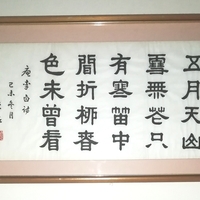 五月天山
雪無花只
有寒笛中
聞折柳春
色未曾看
唐李白詩